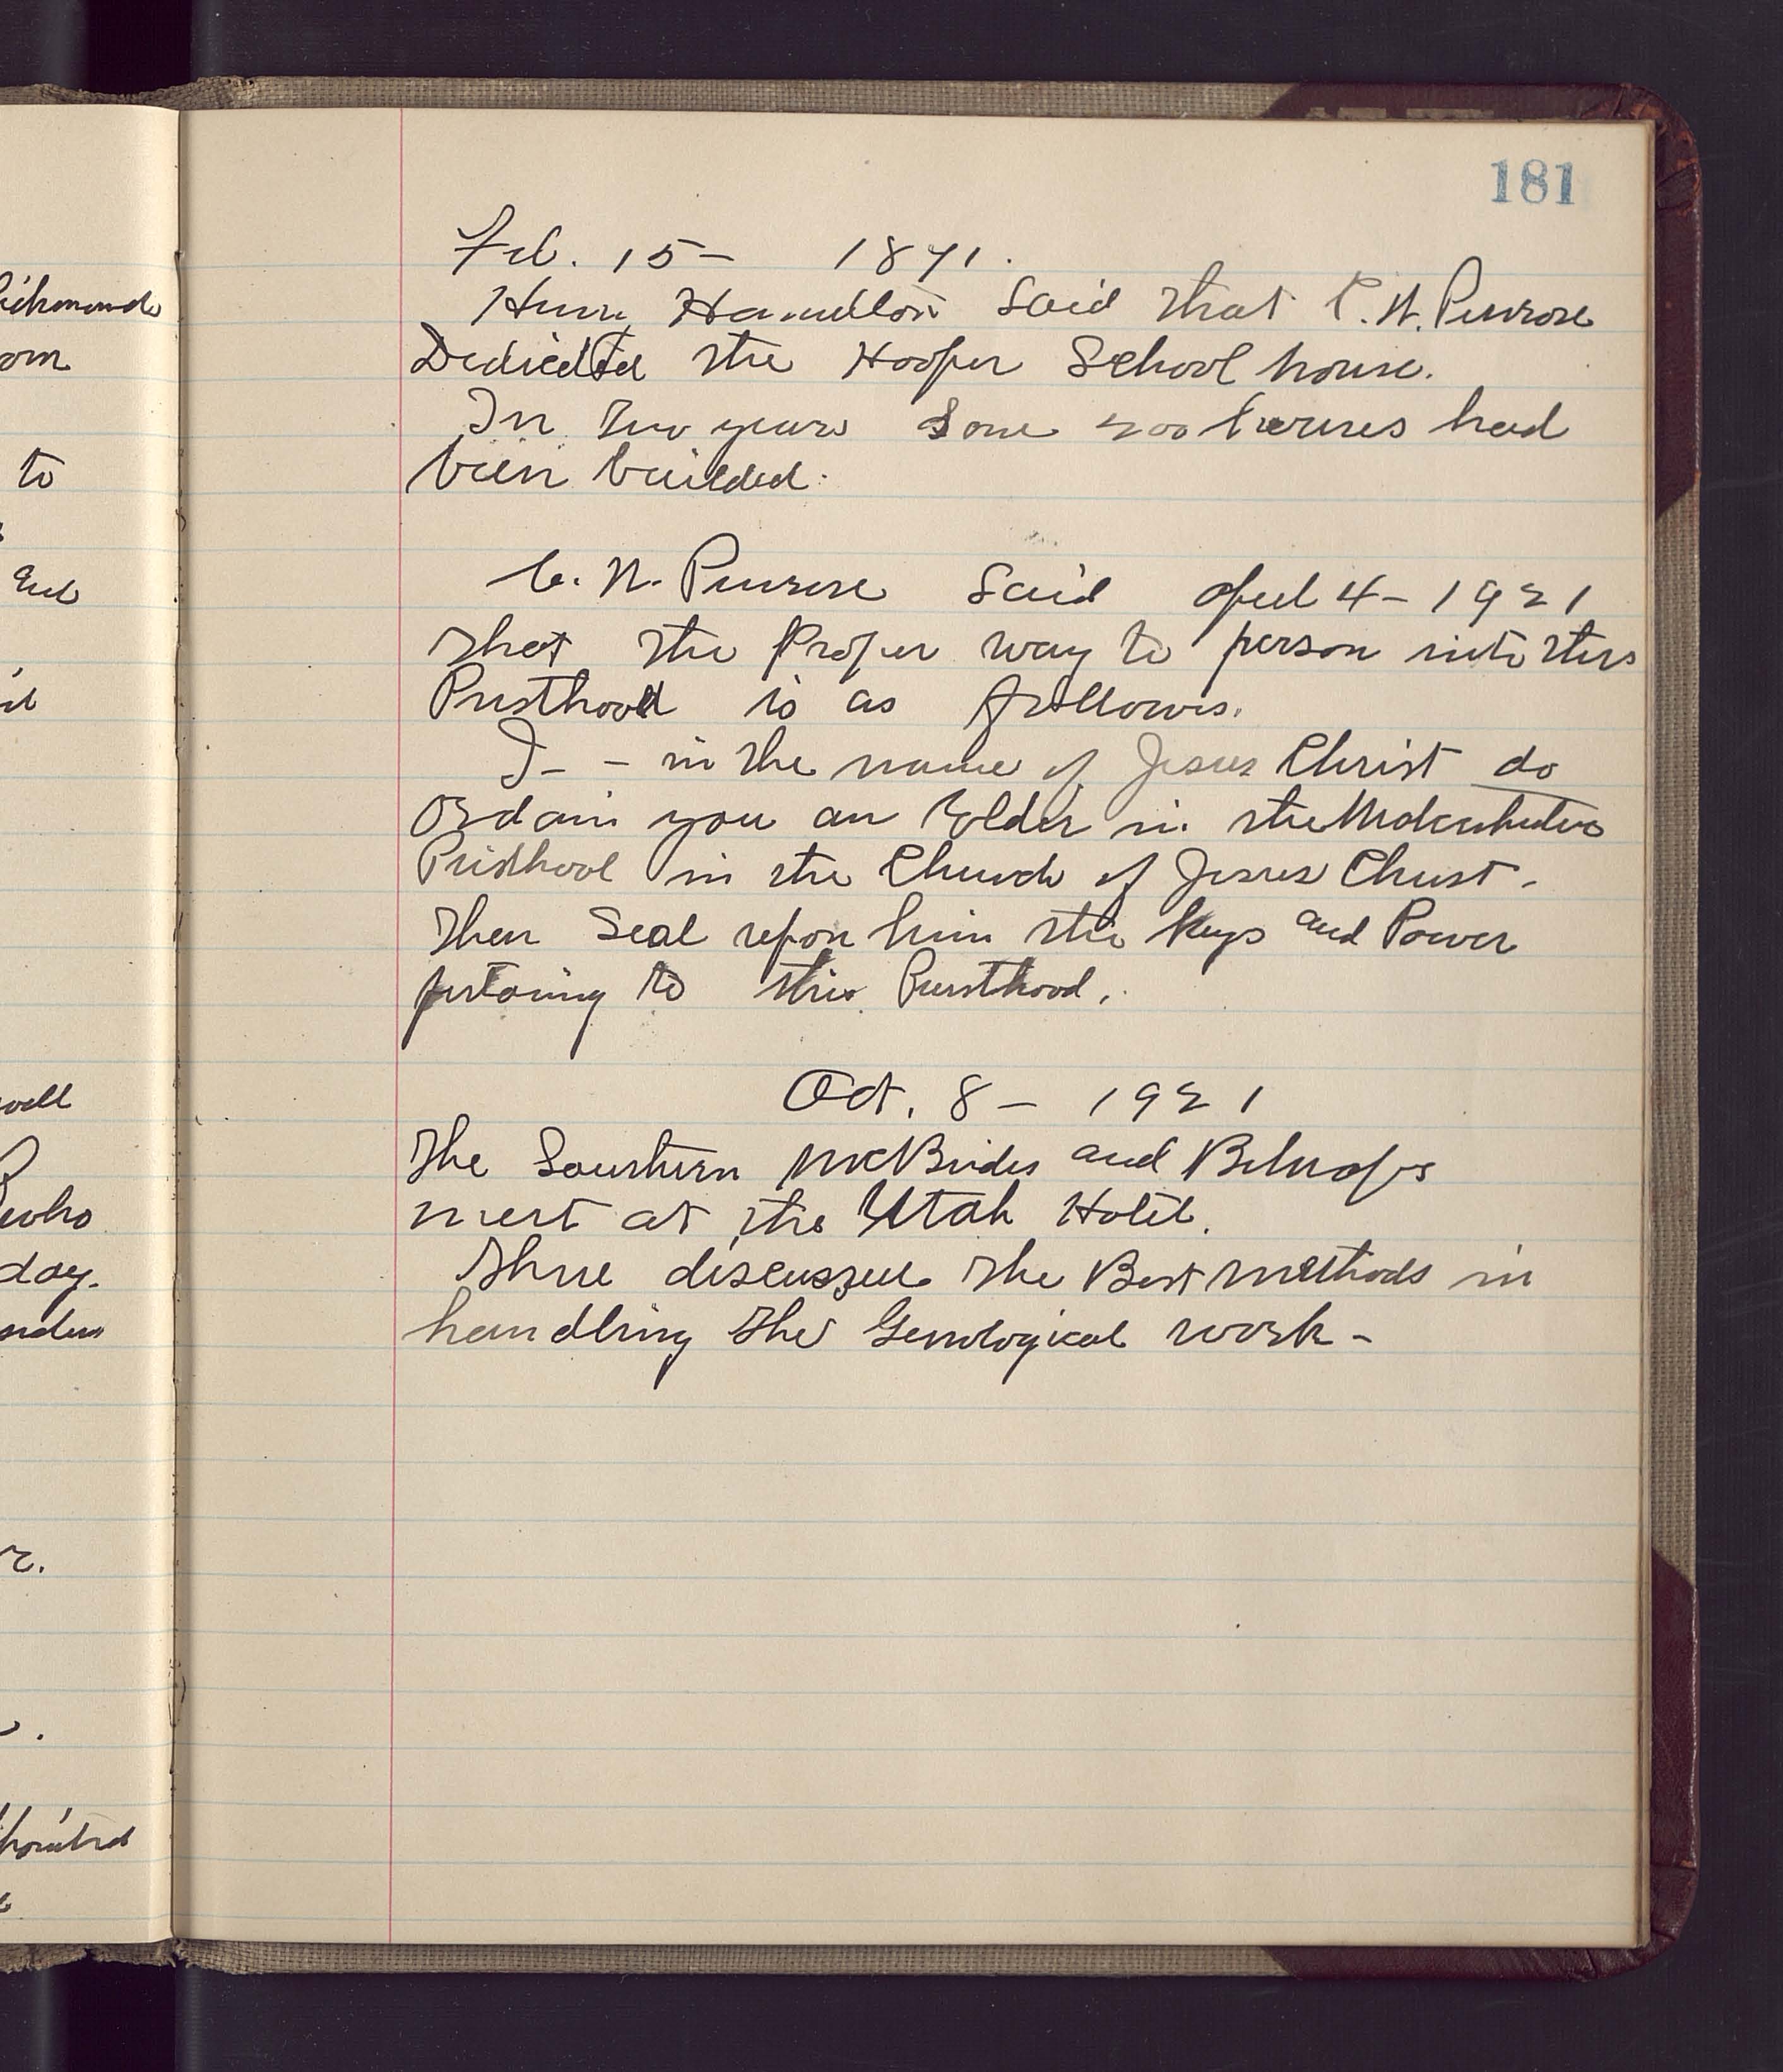 181
Feb. 15- 1871.
Henry Hamilton Said that C. W. Penrose
Dedicated the Hooper School house.
In two years Some 200 houses had
been builded.
C. W. Penrose Said Apl 4- 1921
that the Proper way to person into the
Presthood is as follows.
I- - in the name of Jesus Christ do
ordain you an Elder in the
Pristhood in the Church of Jesus Christ.
Then Seal upon him the keys and Power
pertaining to this Priesthood.
Oct. 8- 1921
The Southern McBrides and Bishops
meet at the Utah Hotel.
There discussed the Best methods in
handling the Genological work-
om
to
and
well
who
day.
r.